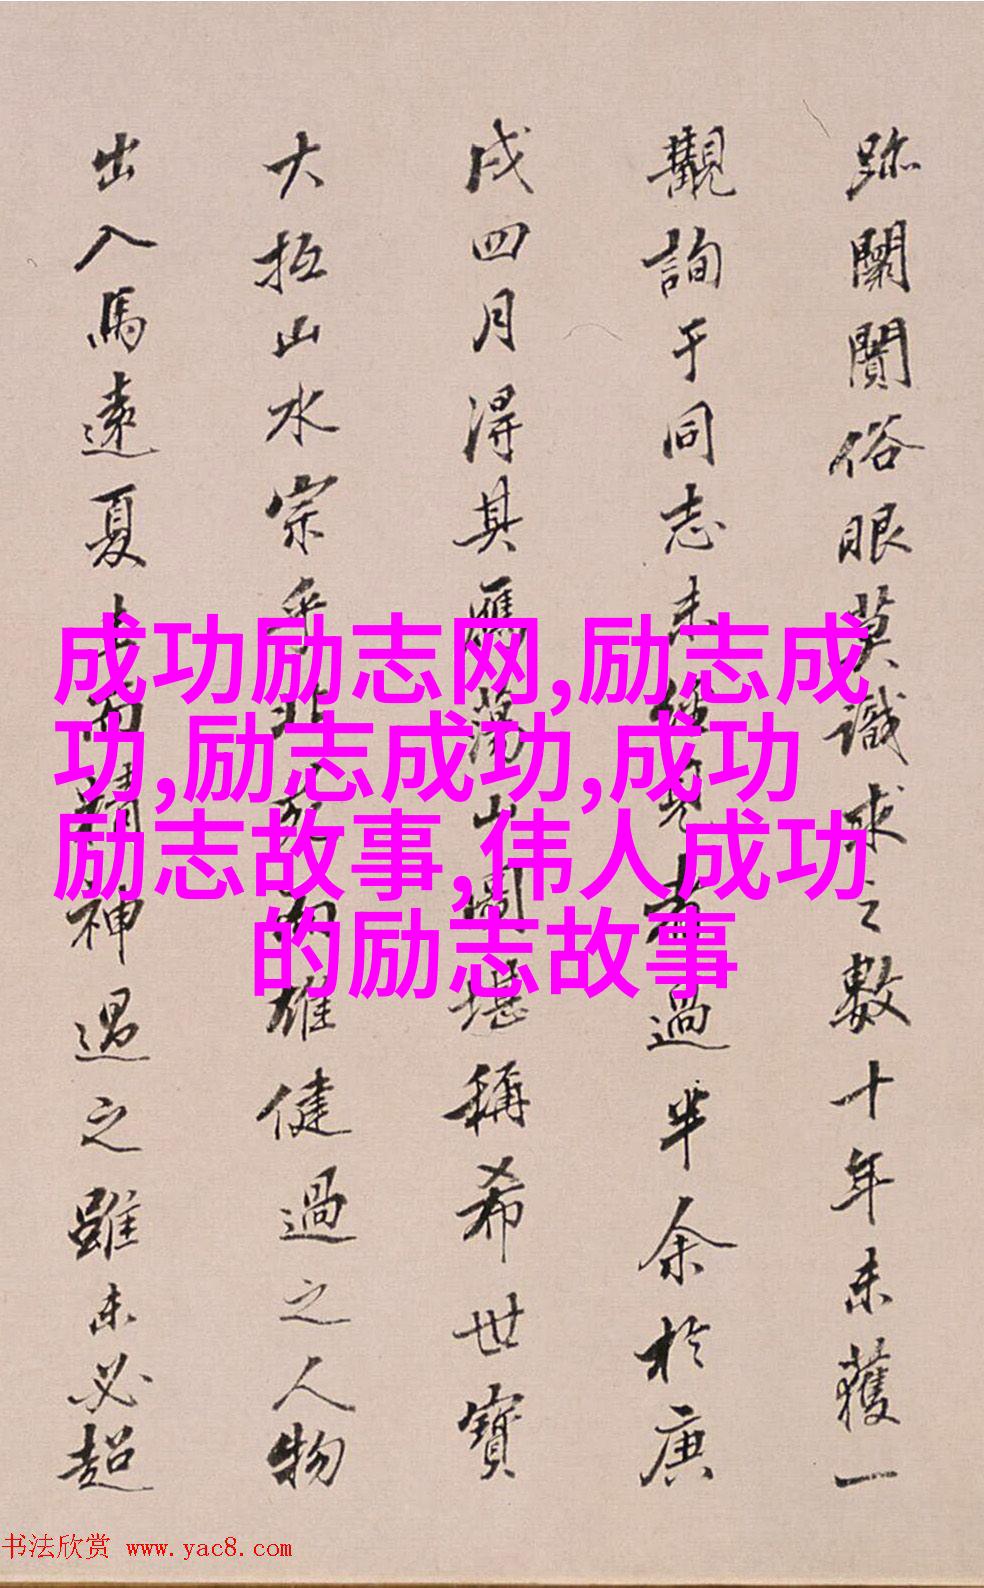 跡闤闠俗眼莫識求之數十年未獲一
觀詢于同志未經見者過半余於庚
戌四月得其鴈蕩山圖堪稱希世寶
大抵山水宗乎北苑而雄健過之人物
出入馬遠夏圭而精神過之雖未必超
成功励志网,励志成
功,励志成功,成功
励志故事,伟人成功
的励志故事
书法欣赏 www.yac8.com